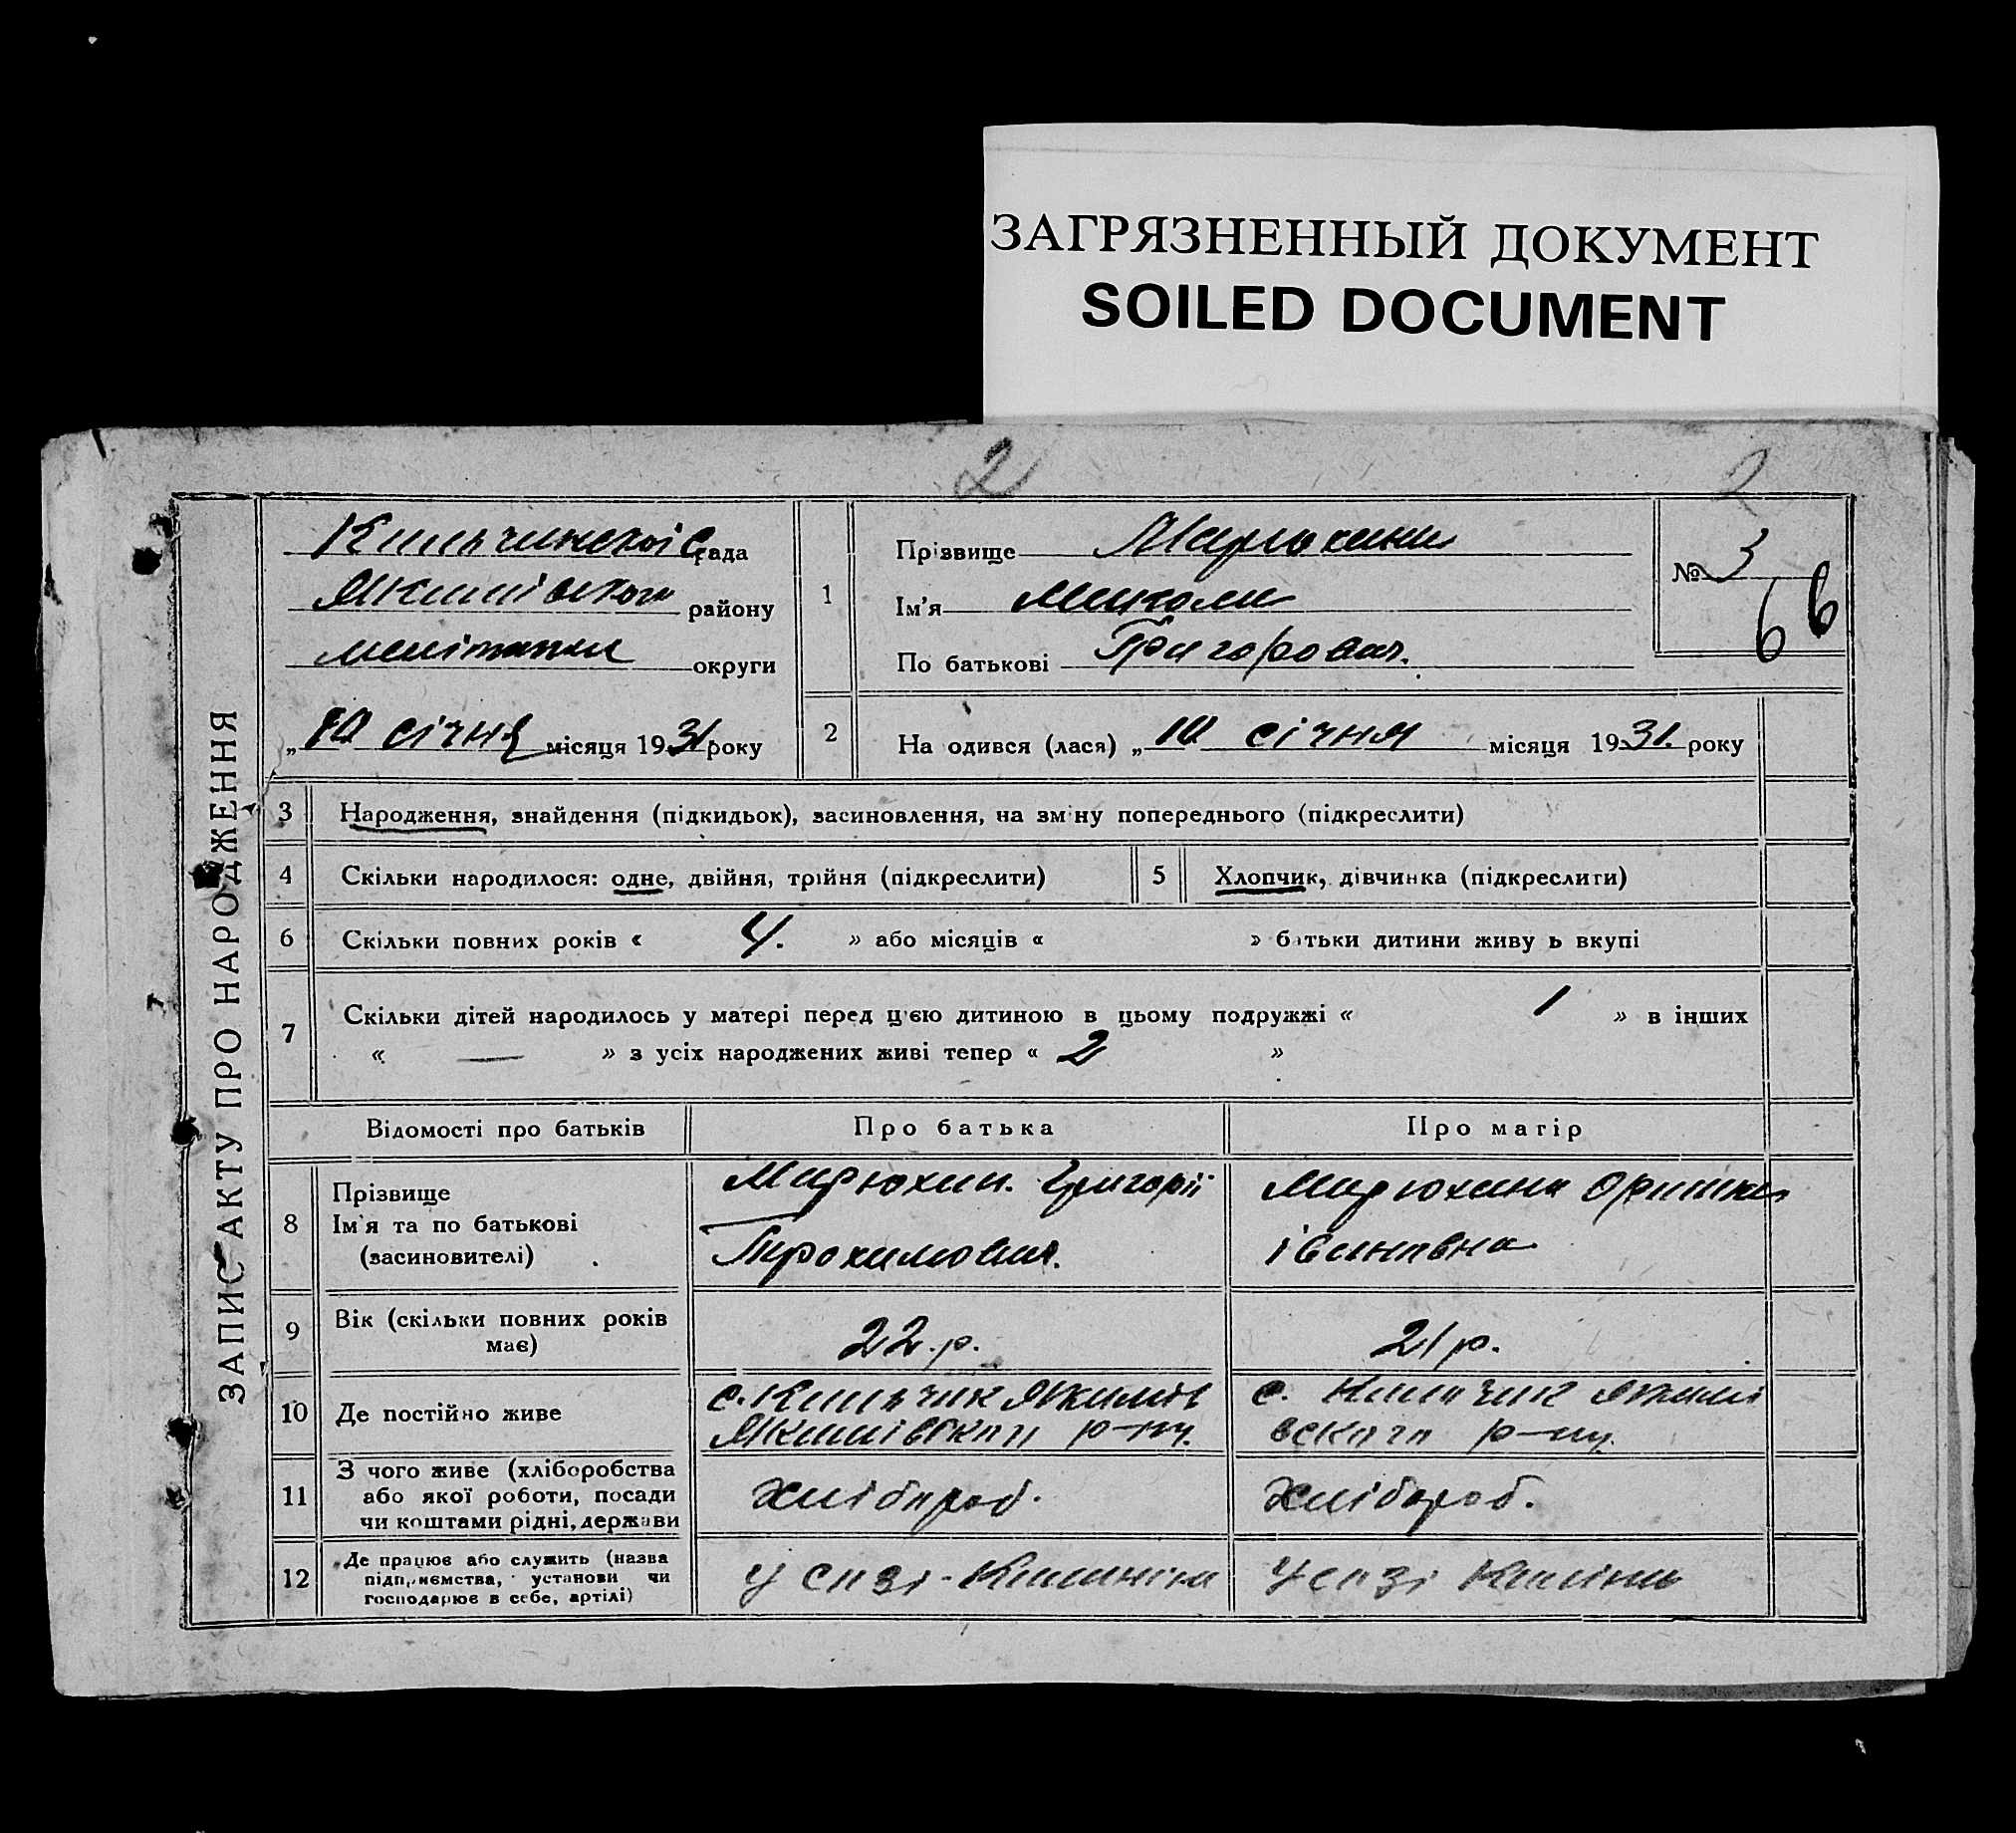 ЗАГРЯЗНЕННЫЙ ДОКУМЕНТ
SOILED DOCUMENT
2
2
ЗАПИС АКТУ ПРО НАРОДЖЕННЯ
рада
району
округи
„10 січня місяця 1931 року
1
Прізвище
Ім'я Миколи
По батькові Григорович.
№ 3
66
2
На одився (лася) „10 січня місяця 1931. року
3 Народження, знайдення (підкидьок), засиновлення, на зміну попереднього (підкреслити)
4 Скільки народилося: одне, двійня, трійня (підкреслити)
5 Хлопчик, дівчинка (підкреслити)
6 Скільки повних років « 4. » або місяців « » батьки дитини живу ь вкупі
7 Скільки дітей народилось у матері перед цією дитиною в цьому подружжі « 1 » в інших
« — » з усіх народжених живі тепер « 2 »
Відомості про батьків
Про батька
Про матір
8 Прізвище
Ім'я та по батькові
(засиновителі)
Мирюхин. Григорій
Трохимович.
Мирюхина Оришка
івановна
9 Вік (скільки повних років
має)
22.р.
21р.
10 Де постійно живе
с. Якимів
Якимівского р-ну.
с. Якимі
вского р-ну.
11 З чого живе (хліборобства
або якої роботи, посади
чи коштами рідні, держави
хлібороб.
хлібороб.
12 Де працює або служить (назва
підприємства, установи чи
господарює в себе, артілі)
у созі
у созі